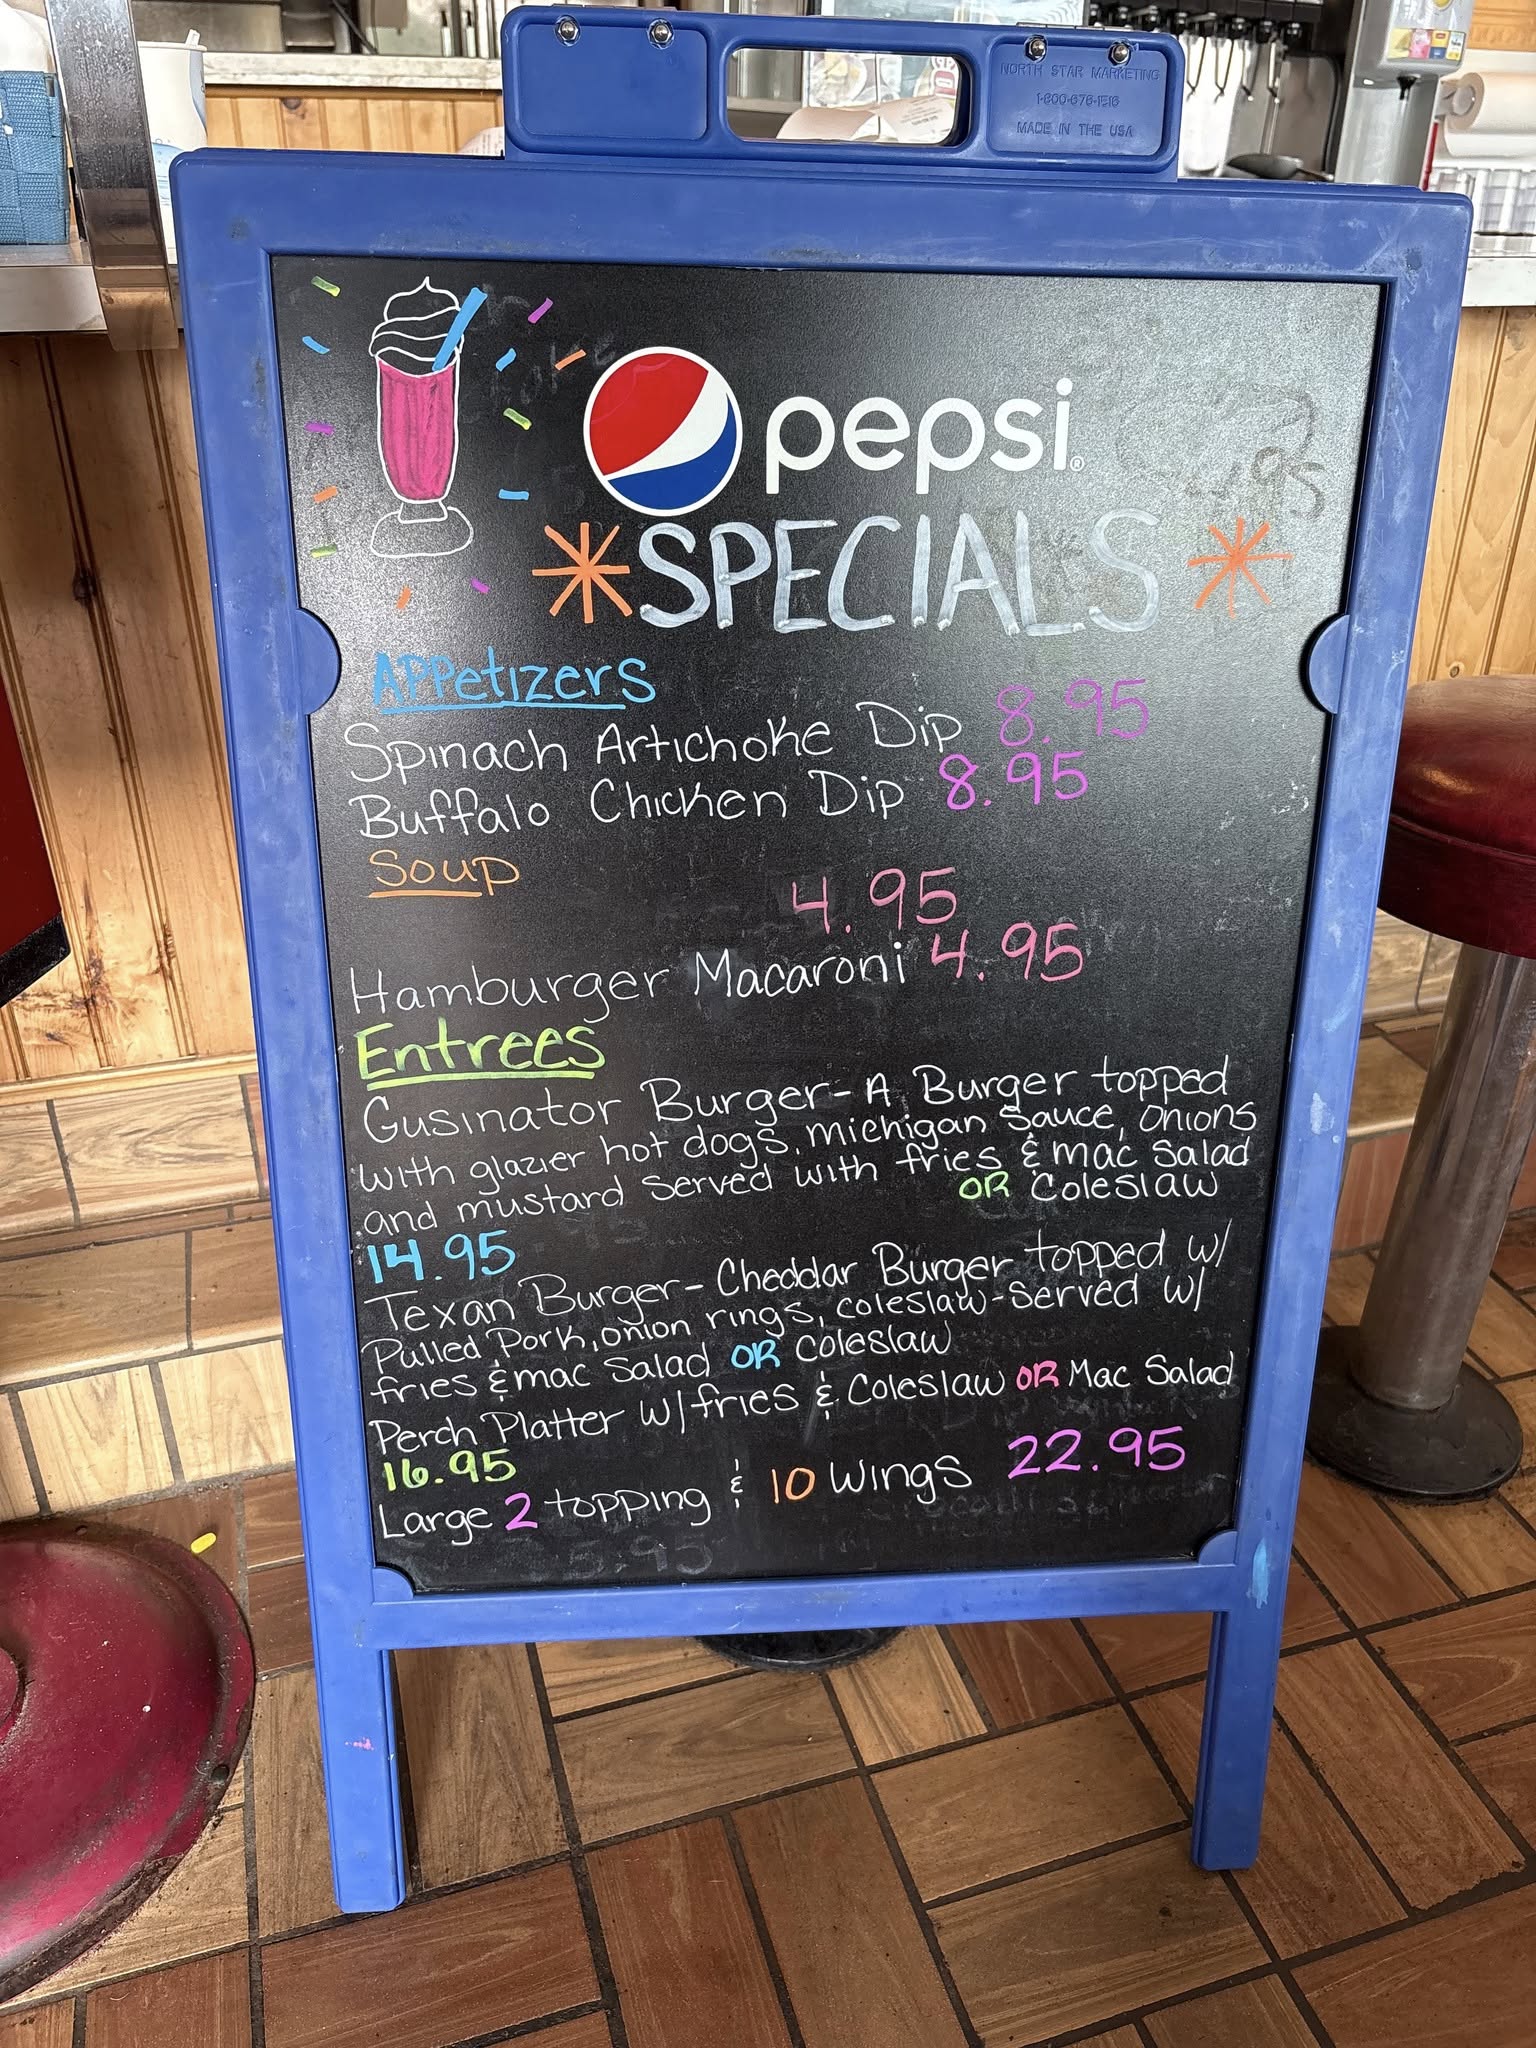 NORTH STAR MARKETING
1-800-676-1516
MADE IN THE USA
pepsi
SPECIALS
Appetizers
Spinach Artichoke Dip 8.95
Buffalo Chicken Dip 8.95
Soup
4.95
Hamburger Macaroni 4.95
Entrees
Gusinator Burger - A Burger topped
with glazier hot dogs, michigan sauce, onions
and mustard served with fries & mac salad
OR Coleslaw
14.95
Texan Burger - Cheddar Burger topped w/
Pulled Pork, onion rings, coleslaw - served w/
fries & mac salad OR Coleslaw
Perch Platter w/fries & Coleslaw OR Mac Salad
16.95
Large 2 topping & 10 Wings 22.95